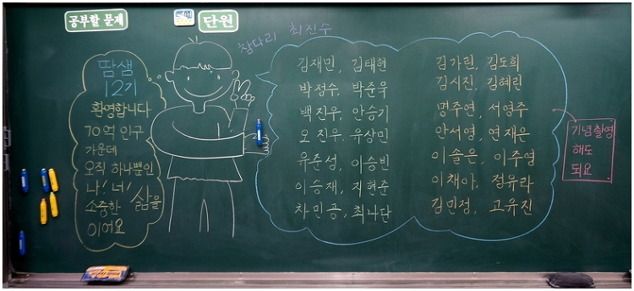 공부할 문제
단원
참다리 최진수
땀샘
12기
환영합니다
70억 인구
가운데
오직 하나뿐인
나! 너!
소중한 삶을
이어요
김재민, 김태현
박정수, 박준우
백진우, 안승기
오진우, 유상민
유준성, 이승빈
이승재, 지현준
차민종, 최나단
김가린, 김도희
김시진, 김혜린
명주연, 서영주
안서영, 연재은
이솔은, 이주영
이채아, 정유라
김민정, 고유진
기념촬영
해도
되요